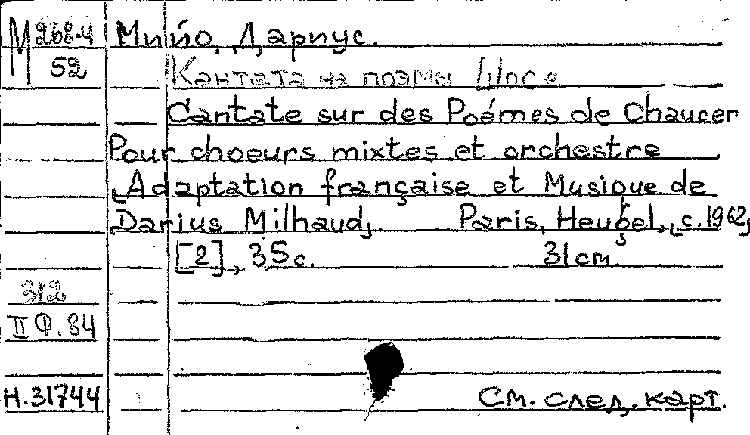 М 268-4
52
Мийо, Дариус.
Кантата на поэмы Чосе
Cantate sur des Poémes de Chaucer
Pour choeurs mixtes et orchestre
Adaptation française et Musique de
Darius Milhaud, Paris, Heugel, c.1962,
[2], 35 с. 31 cm.
312
II Ф. 84
Н.31744
См. след. карт.